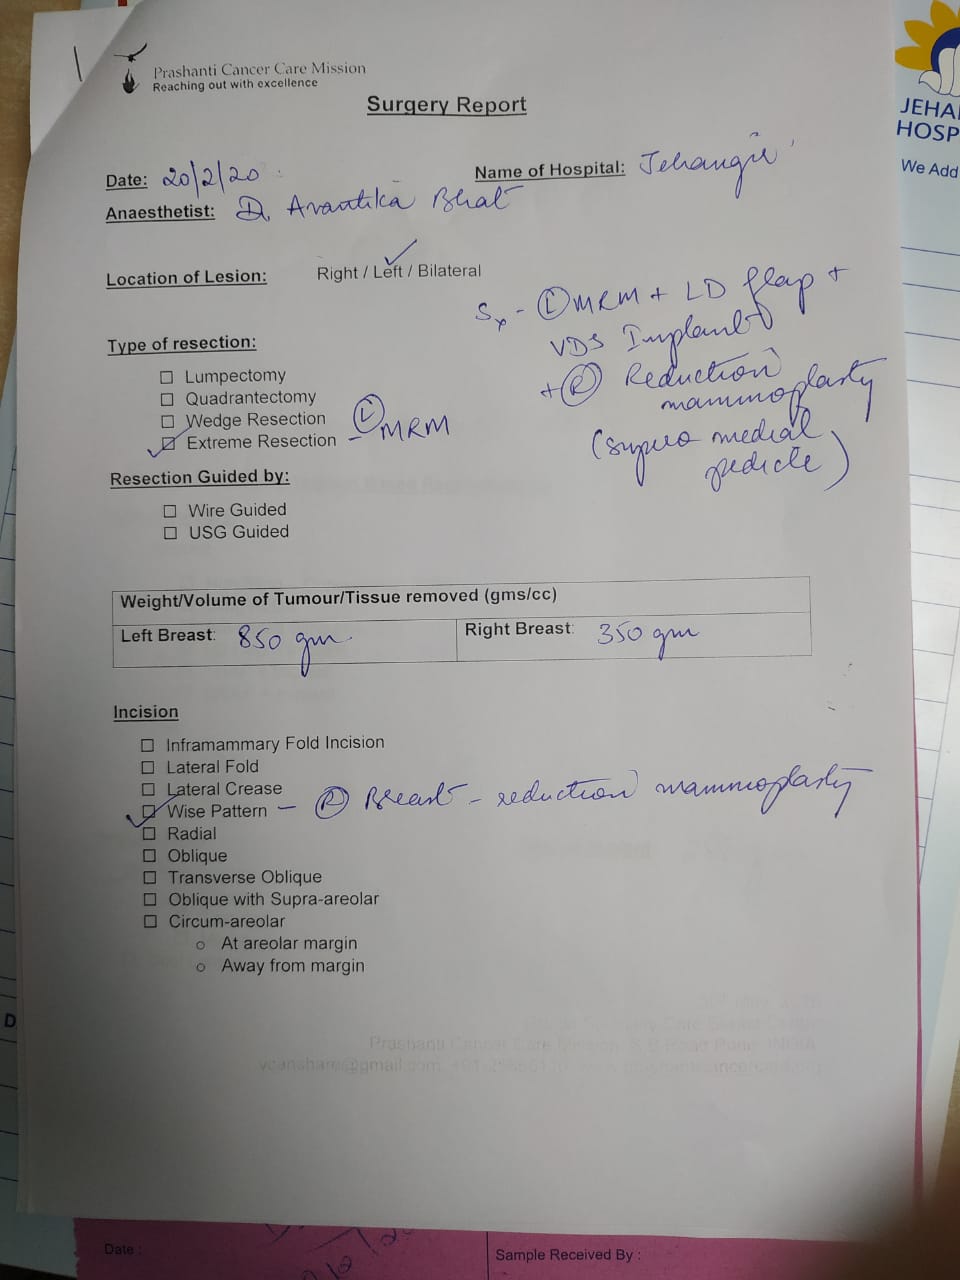 Prashanti Cancer Care Mission
Reaching out with excellence
Surgery Report
JEHA
HOSP
We Add
Date: 20/2/20
Name of Hospital: Jehangir
Anaesthetist: Dr Avantika Bhat
Location of Lesion: Right / Left / Bilateral
Sx - (L) MRM + LD flap +
VDS Implant
+ (R) Reduction
mammoplasty
(supero medial
pedicle)
Type of resection:
☐ Lumpectomy
☐ Quadrantectomy
☐ Wedge Resection
☑ Extreme Resection - (L) MRM
Resection Guided by:
☐ Wire Guided
☐ USG Guided
Weight/Volume of Tumour/Tissue removed (gms/cc)
Left Breast: 850 gm.
Right Breast: 350 gm
Incision
☐ Inframammary Fold Incision
☐ Lateral Fold
☐ Lateral Crease
☑ Wise Pattern - (R) Breast - reduction mammoplasty
☐ Radial
☐ Oblique
☐ Transverse Oblique
☐ Oblique with Supra-areolar
☐ Circum-areolar
○ At areolar margin
○ Away from margin
D
Date :
Sample Received By :